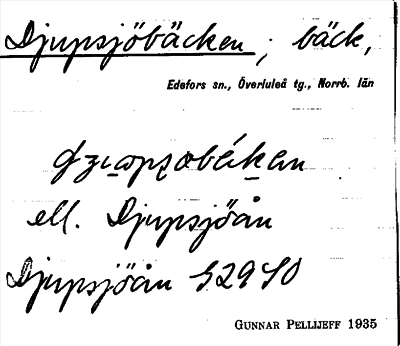 Djupsjöbäcken, bäck,
Edefors sn., Överluleå tg., Norrb. län
ell. Djupsjöån
Djupsjöån
GUNNAR PELLIJEFF 1935